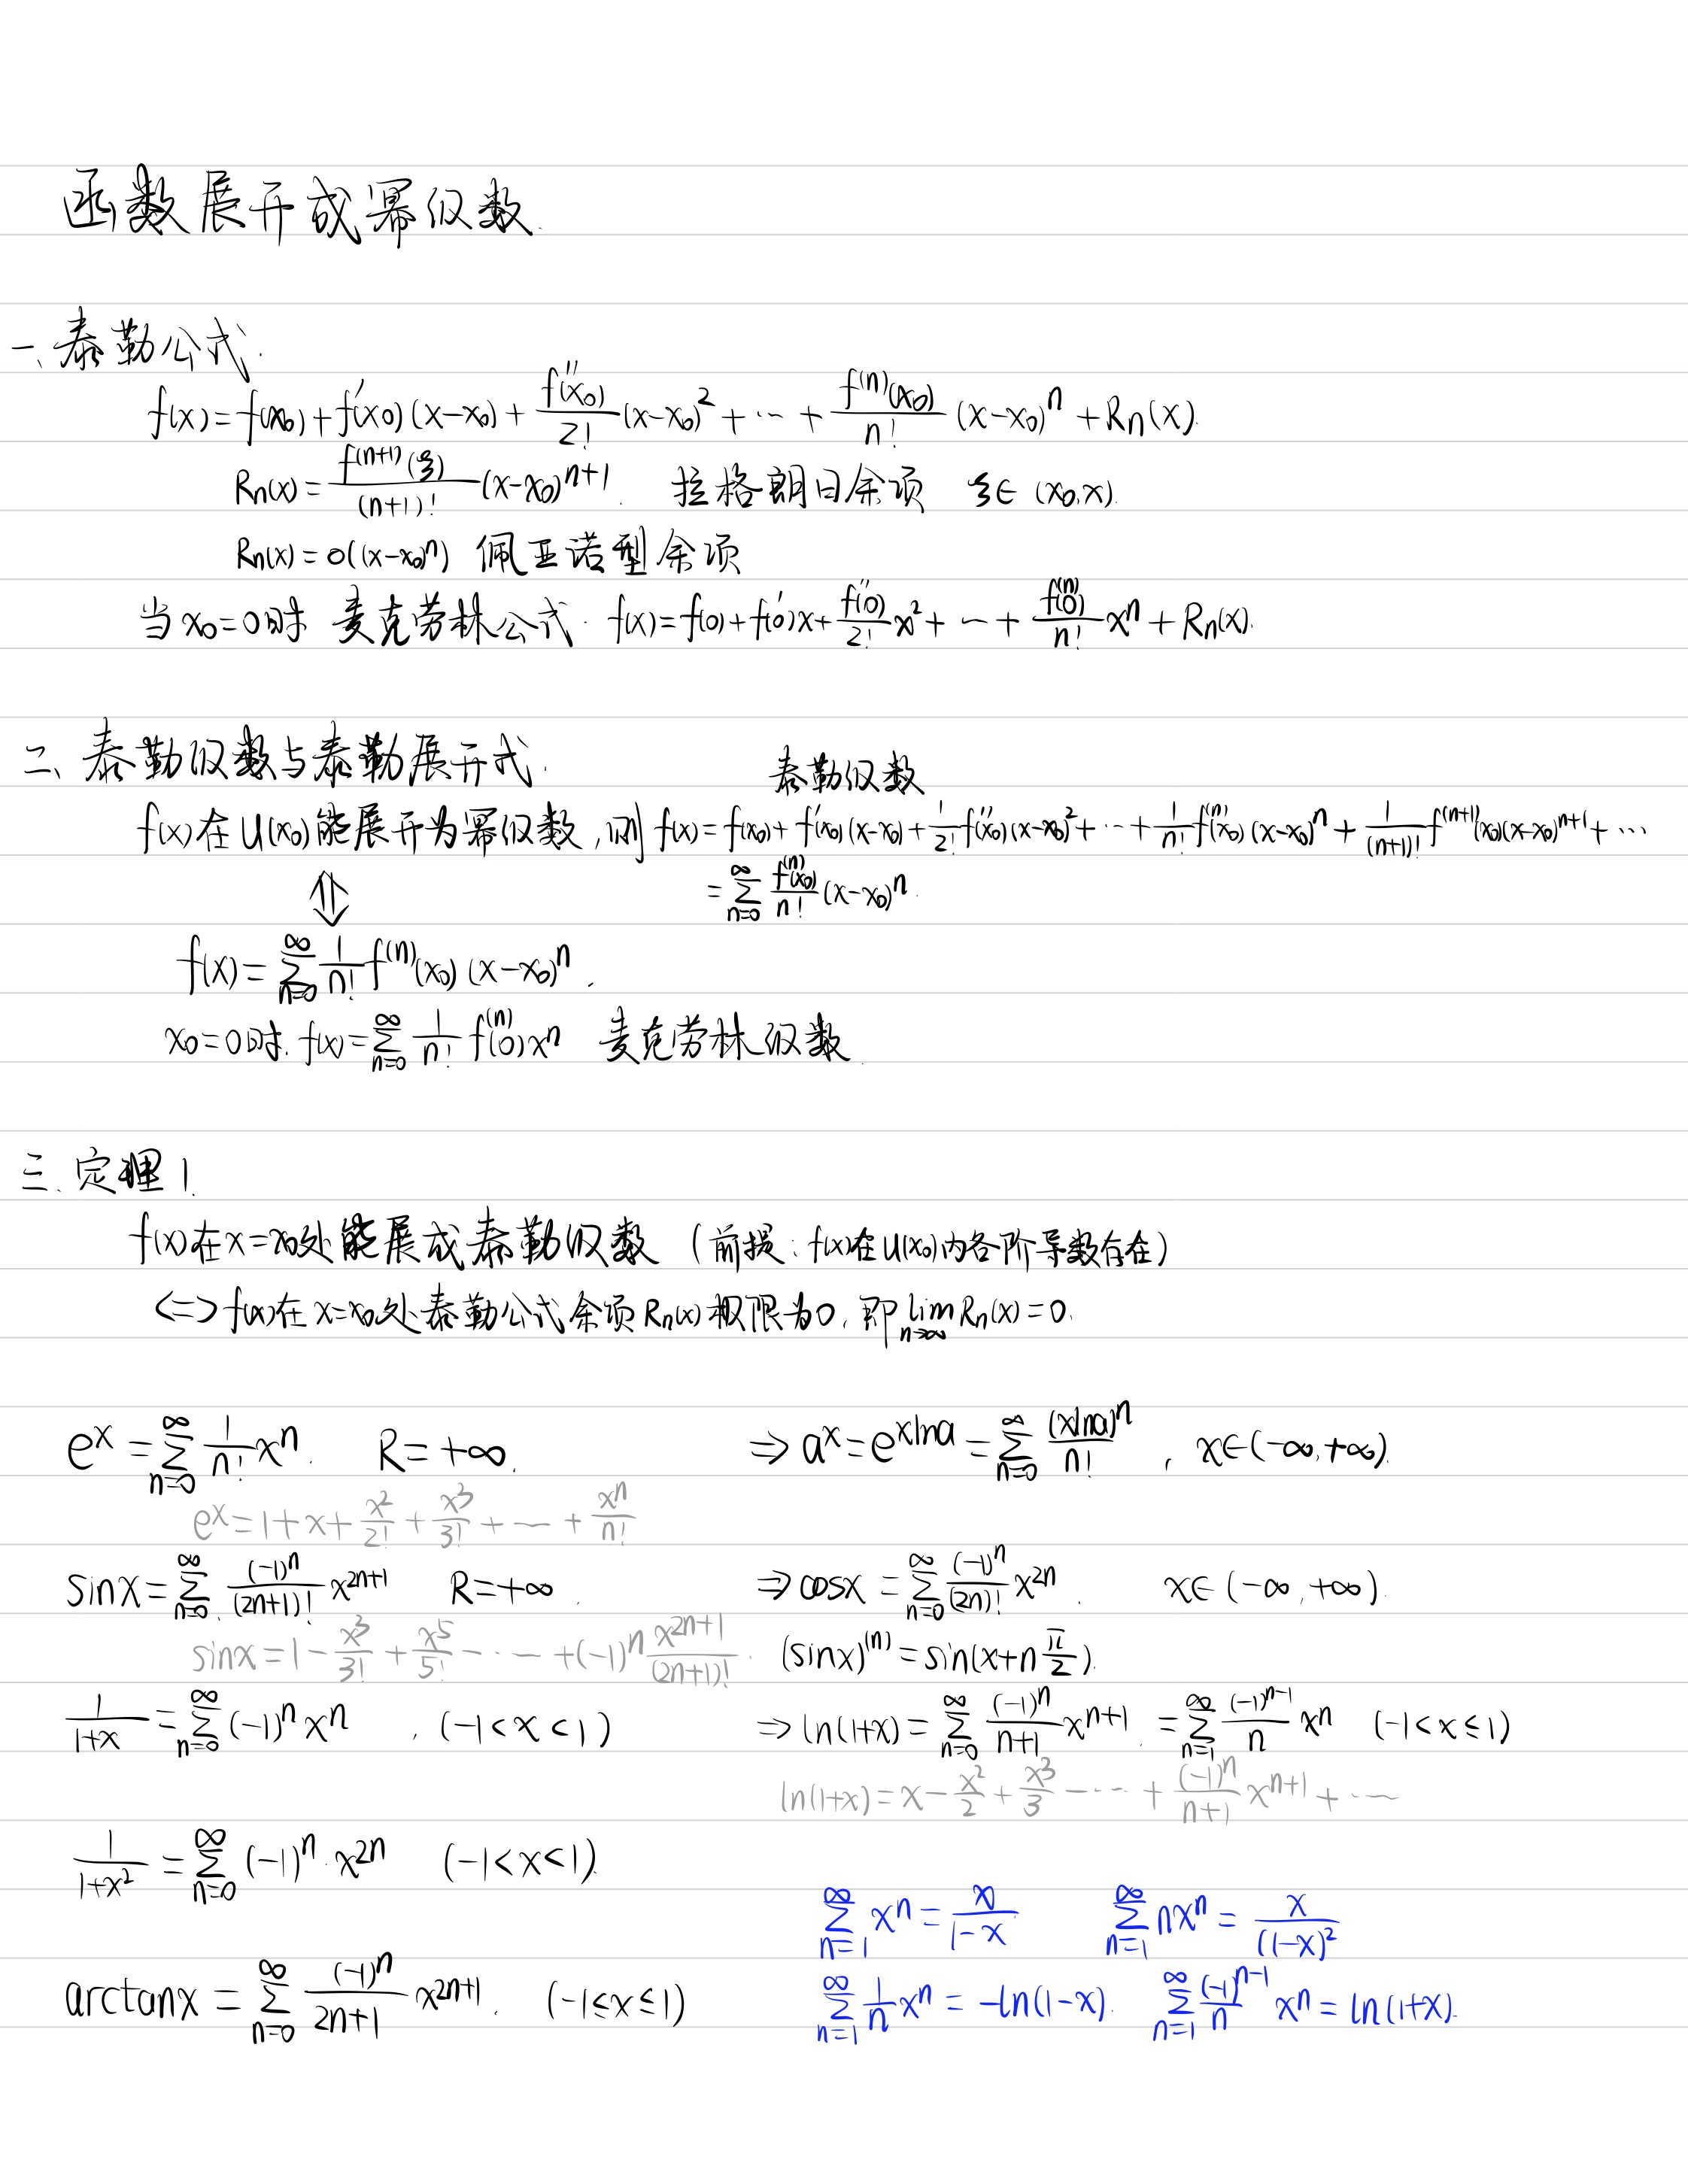 函数展开成幂级数.
一、泰勒公式.
f(x)=f(x₀)+f'(x₀)(x-x₀)+\frac{f''(x₀)}{2!}(x-x₀)²+⋯+\frac{f⁽ⁿ⁾(x₀)}{n!}(x-x₀)ⁿ+Rₙ(x).
Rₙ(x)=\frac{f⁽ⁿ⁺¹⁾(ξ)}{(n+1)!}(x-x₀)ⁿ⁺¹. 拉格朗日余项 ξ∈(x₀,x).
Rₙ(x)=o((x-x₀)ⁿ) 佩亚诺型余项
当x₀=0时 麦克劳林公式. f(x)=f(0)+f'(0)x+\frac{f''(0)}{2!}x²+⋯+\frac{f⁽ⁿ⁾(0)}{n!}xⁿ+Rₙ(x).
二、泰勒级数与泰勒展开式.
泰勒级数
f(x)在U(x₀)能展开为幂级数,则 f(x)=f(x₀)+f'(x₀)(x-x₀)+\frac{1}{2!}f''(x₀)(x-x₀)²+⋯+\frac{1}{n!}f⁽ⁿ⁾(x₀)(x-x₀)ⁿ+\frac{1}{(n+1)!}f⁽ⁿ⁺¹⁾(x₀)(x-x₀)ⁿ⁺¹+⋯
=\sum_{n=0}^{∞}\frac{f⁽ⁿ⁾(x₀)}{n!}(x-x₀)ⁿ.
⇕
f(x)=\sum_{n=0}^{∞}\frac{1}{n!}f⁽ⁿ⁾(x₀)(x-x₀)ⁿ.
x₀=0时. f(x)=\sum_{n=0}^{∞}\frac{1}{n!}f⁽ⁿ⁾(0)xⁿ 麦克劳林级数.
三、定理1.
f(x)在x=x₀处能展成泰勒级数 (前提:f(x)在U(x₀)内各阶导数存在)
<=> f(x)在x=x₀处泰勒公式余项Rₙ(x)极限为0, 即\lim_{n→∞}Rₙ(x)=0.
eˣ=\sum_{n=0}^{∞}\frac{1}{n!}xⁿ. R=+∞. ⇒ aˣ=e^{xlna}=\sum_{n=0}^{∞}\frac{(xlna)ⁿ}{n!}, x∈(-∞,+∞).
eˣ=1+x+\frac{x²}{2!}+\frac{x³}{3!}+⋯+\frac{xⁿ}{n!}
sinx=\sum_{n=0}^{∞}\frac{(-1)ⁿ}{(2n+1)!}x²ⁿ⁺¹ R=+∞. ⇒ cosx=\sum_{n=0}^{∞}\frac{(-1)ⁿ}{(2n)!}x²ⁿ. x∈(-∞,+∞).
sinx=1-\frac{x³}{3!}+\frac{x⁵}{5!}-⋯+(-1)ⁿ\frac{x²ⁿ⁺¹}{(2n+1)!}. (sinx)⁽ⁿ⁾=sin(x+n\frac{π}{2}).
\frac{1}{1+x}=\sum_{n=0}^{∞}(-1)ⁿxⁿ, (-1<x<1) ⇒ ln(1+x)=\sum_{n=0}^{∞}\frac{(-1)ⁿ}{n+1}xⁿ⁺¹.=\sum_{n=1}^{∞}\frac{(-1)ⁿ⁻¹}{n}xⁿ (-1<x≤1)
ln(1+x)=x-\frac{x²}{2}+\frac{x³}{3}-⋯+\frac{(-1)ⁿ}{n+1}xⁿ⁺¹+⋯
\frac{1}{1+x²}=\sum_{n=0}^{∞}(-1)ⁿ·x²ⁿ (-1<x<1).
\sum_{n=1}^{∞}xⁿ=\frac{x}{1-x} \sum_{n=1}^{∞}nxⁿ=\frac{x}{(1-x)²}
arctanx=\sum_{n=0}^{∞}\frac{(-1)ⁿ}{2n+1}x²ⁿ⁺¹. (-1≤x≤1)
\sum_{n=1}^{∞}\frac{1}{n}xⁿ=-ln(1-x). \sum_{n=1}^{∞}\frac{(-1)ⁿ⁻¹}{n}xⁿ=ln(1+x).